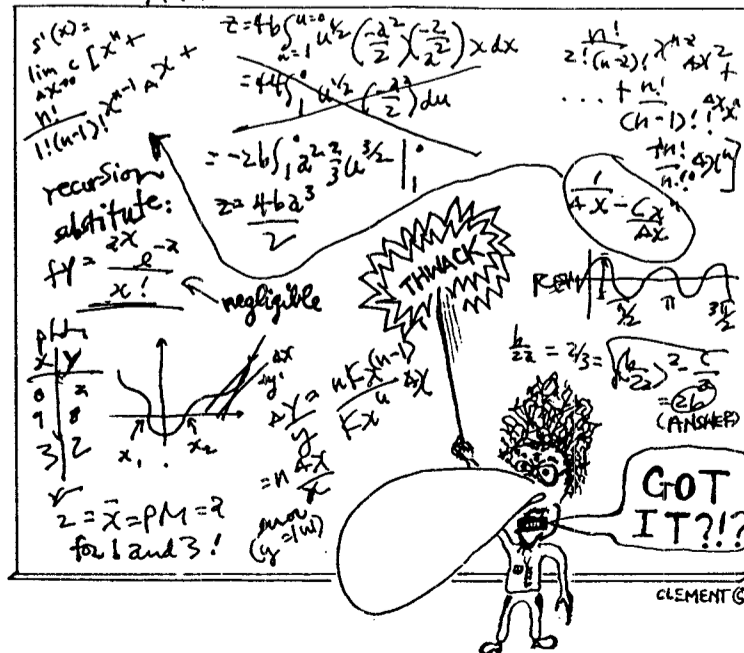 s'(x) =
lim c [xⁿ +
Δx→0
n!
1!(n-1)! xⁿ⁻¹ Δx +
z = 4b ∫ᵤ₌₁ᵘ⁼⁰ u^1/2 (-a²/2)(-2/a²) x dx
= 44 ∫₁⁰ u^1/2 (-a²/2) du
= -2b ∫₁⁰ a² 2/3 u^3/2 |₁⁰
z = 4ba³/2
n!
2!(n-2)! xⁿ⁻² Δx² +
... + n!
(n-1)!1! Δx xⁿ
+n!
n!0! Δxⁿ]
1/Δx - Cxⁿ/Δx
recursion
substitute:
fy = 2x e⁻²
x!
negligible
THWACK
π/2 π 3π/2
b/2a = 2/3 = √(b/2a)² - c/a
= 2b
(ANSWER)
x y
9 8
3 2
Δx
Δy
x₁ x₂
Δy/y = nKx^(n-1)/Kxⁿ Δx
= n Δx/x
2 = x̄ = PM = 2
for 1 and 3!
GOT
IT?!?
CLEMENT ©